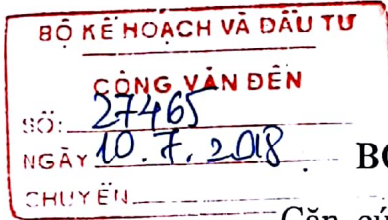 BỘ KẾ HOẠCH VÀ ĐẦU TƯ
CÔNG VĂN ĐẾN
SỐ: 27465
NGÀY 10.7.2018
CHUYỂN
Căn cứ